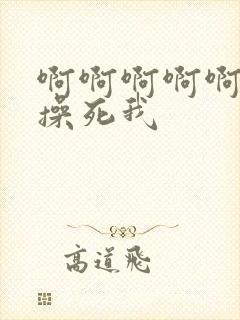 啊啊啊啊啊
操死我
高道飛